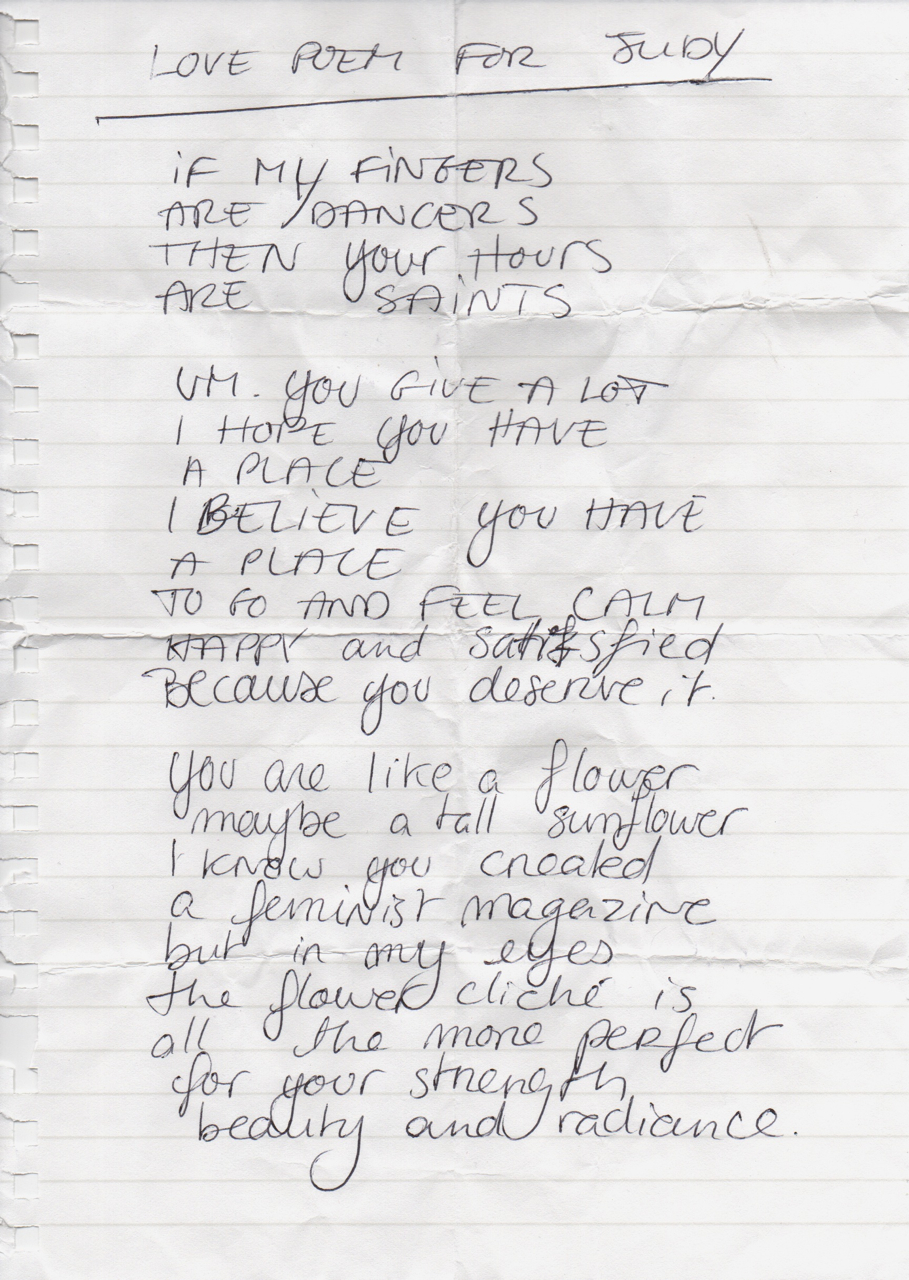 LOVE POEM FOR JUDY
iF MY FiNGERS
ARE DANCERS
THEN your HOURS
ARE SAiNTS
UM. YOU GiVE A LOT
I HOPE YOU HAVE
A PLACE
I BELiEVE YOU HAVE
A PLACE
TO GO AND FEEL CALM
HAPPY and satisfied
Because you deserve it.
You are like a flower
maybe a tall sunflower
I know you created
a feminist magazine
but in my eyes
the flower cliché is
all the more perfect
for your strength
beauty and radiance.